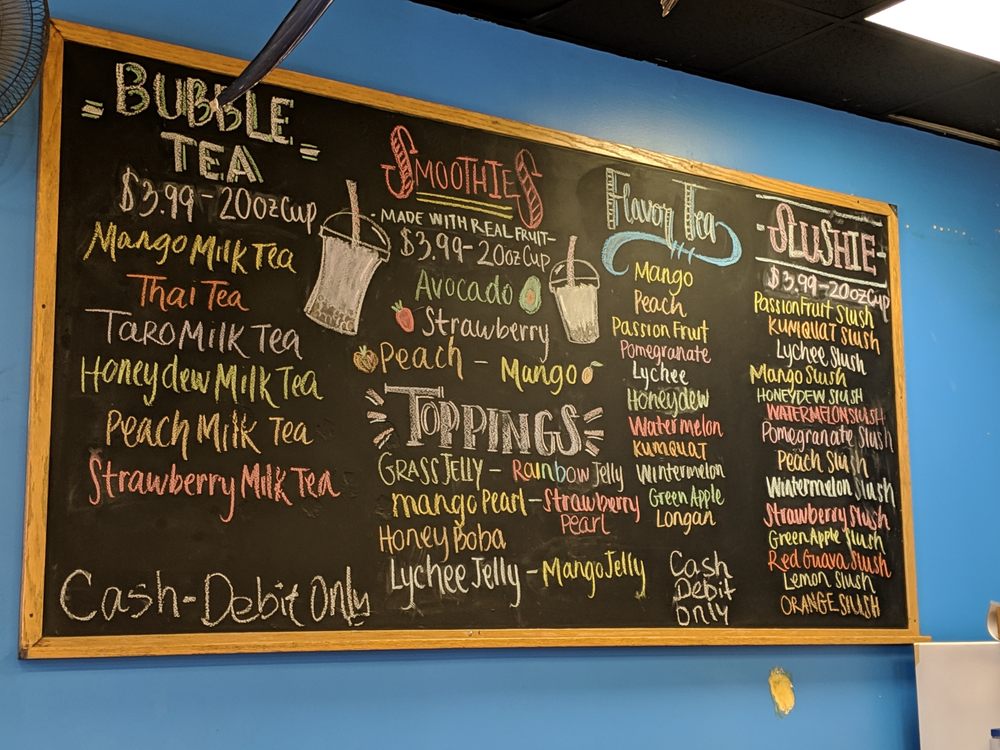 BUBBLE
TEA
$3.99-20ozCup
Mango Milk Tea
Thai Tea
Taro Milk Tea
Honeydew Milk Tea
Peach Milk Tea
Strawberry Milk Tea
Cash-Debit Only
SMOOTHIES
-MADE WITH REAL FRUIT-
$3.99-20ozCup
Avocado
Strawberry
Peach - Mango
TOPPINGS
GRASS JELLY - Rainbow Jelly
mango Pearl - Strawberry
Pearl
Honey Boba
Lychee Jelly - Mango Jelly
Flavor Tea
Mango
Peach
Passion Fruit
Pomegranate
Lychee
Honeydew
Watermelon
KUMQUAT
Wintermelon
Green Apple
Longan
Cash
Debit
only
-SLUSHIE-
$3.99-20ozCup
PassionFruit Slush
KUMQUAT Slush
Lychee Slush
Mango Slush
HONEYDEW SLUSH
WATERMELON SLUSH
Pomegranate Slush
Peach Slush
Wintermelon Slush
Strawberry Slush
Green Apple Slush
Red Guava Slush
Lemon Slush
ORANGE SLUSH